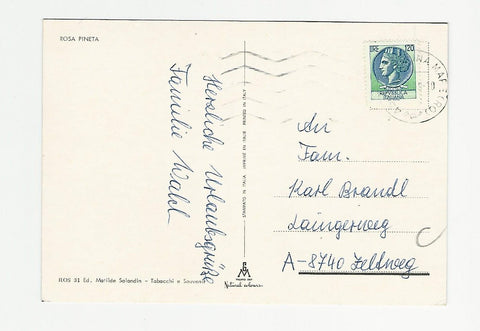 ROSA PINETA
Herzliche Urlaubsgrüße
Familie Walch
STAMPATO IN ITALIA IMPRIMÉ EN ITALIE PRINTED IN ITALY
LIRE 120
REPUBBLICA
ITALIANA
An
Fam.
Karl Brandl
Laingerweg
A-8740 Zeltweg
Ed. Matilde Salandin - Tabacchi e Souvenir
Natural colours